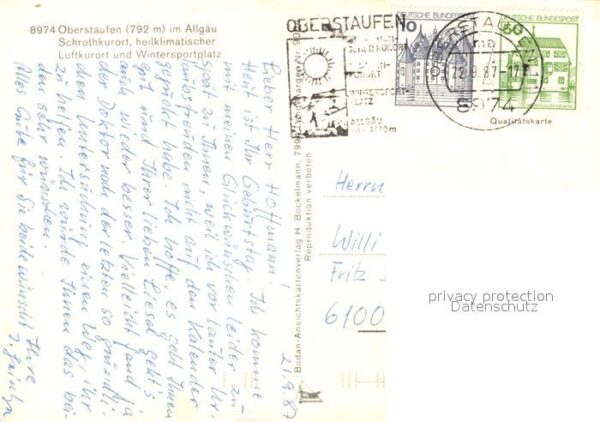 8974 Oberstaufen (792 m) im Allgäu
Schrothkurort, heilklimatischer
Luftkurort und Wintersportplatz
21.9.87
Lieber Herr Hoffmann!
Heut ist Ihr Geburtstag. Ich komme
mit meinen Glückwünschen leider zu
spät zu Ihnen, weil ich vor lauter Ur-
laubsfreuden nicht auf den Kalender
geguckt habe. Ich hoffe, es geht Ihnen
gut und Ihrer lieben Liesel geht's
auch wieder besser. Vielleicht fand ja
der Doktor nach der letzten so gründli-
chen Untersuchung einen Weg, ihr
zu helfen. Ich würde Ihnen das bei-
den sehr wünschen.
Alles Gute für Sie beide wünscht Ihre
Bodan-Ansichtskartenverlag H. Bockelmann, 799
Reproduktion verboten
OBERSTAUFEN
SCHROTHKURORT
WINTERSPORT-
PLATZ
ALLGÄU
OBERSTAUFEN
22.9.87-17
8974
10
DEUTSCHE BUNDESPOST
60
Qualitätskarte
Herrn
Willi
Fritz
6100
privacy protection
Datenschutz